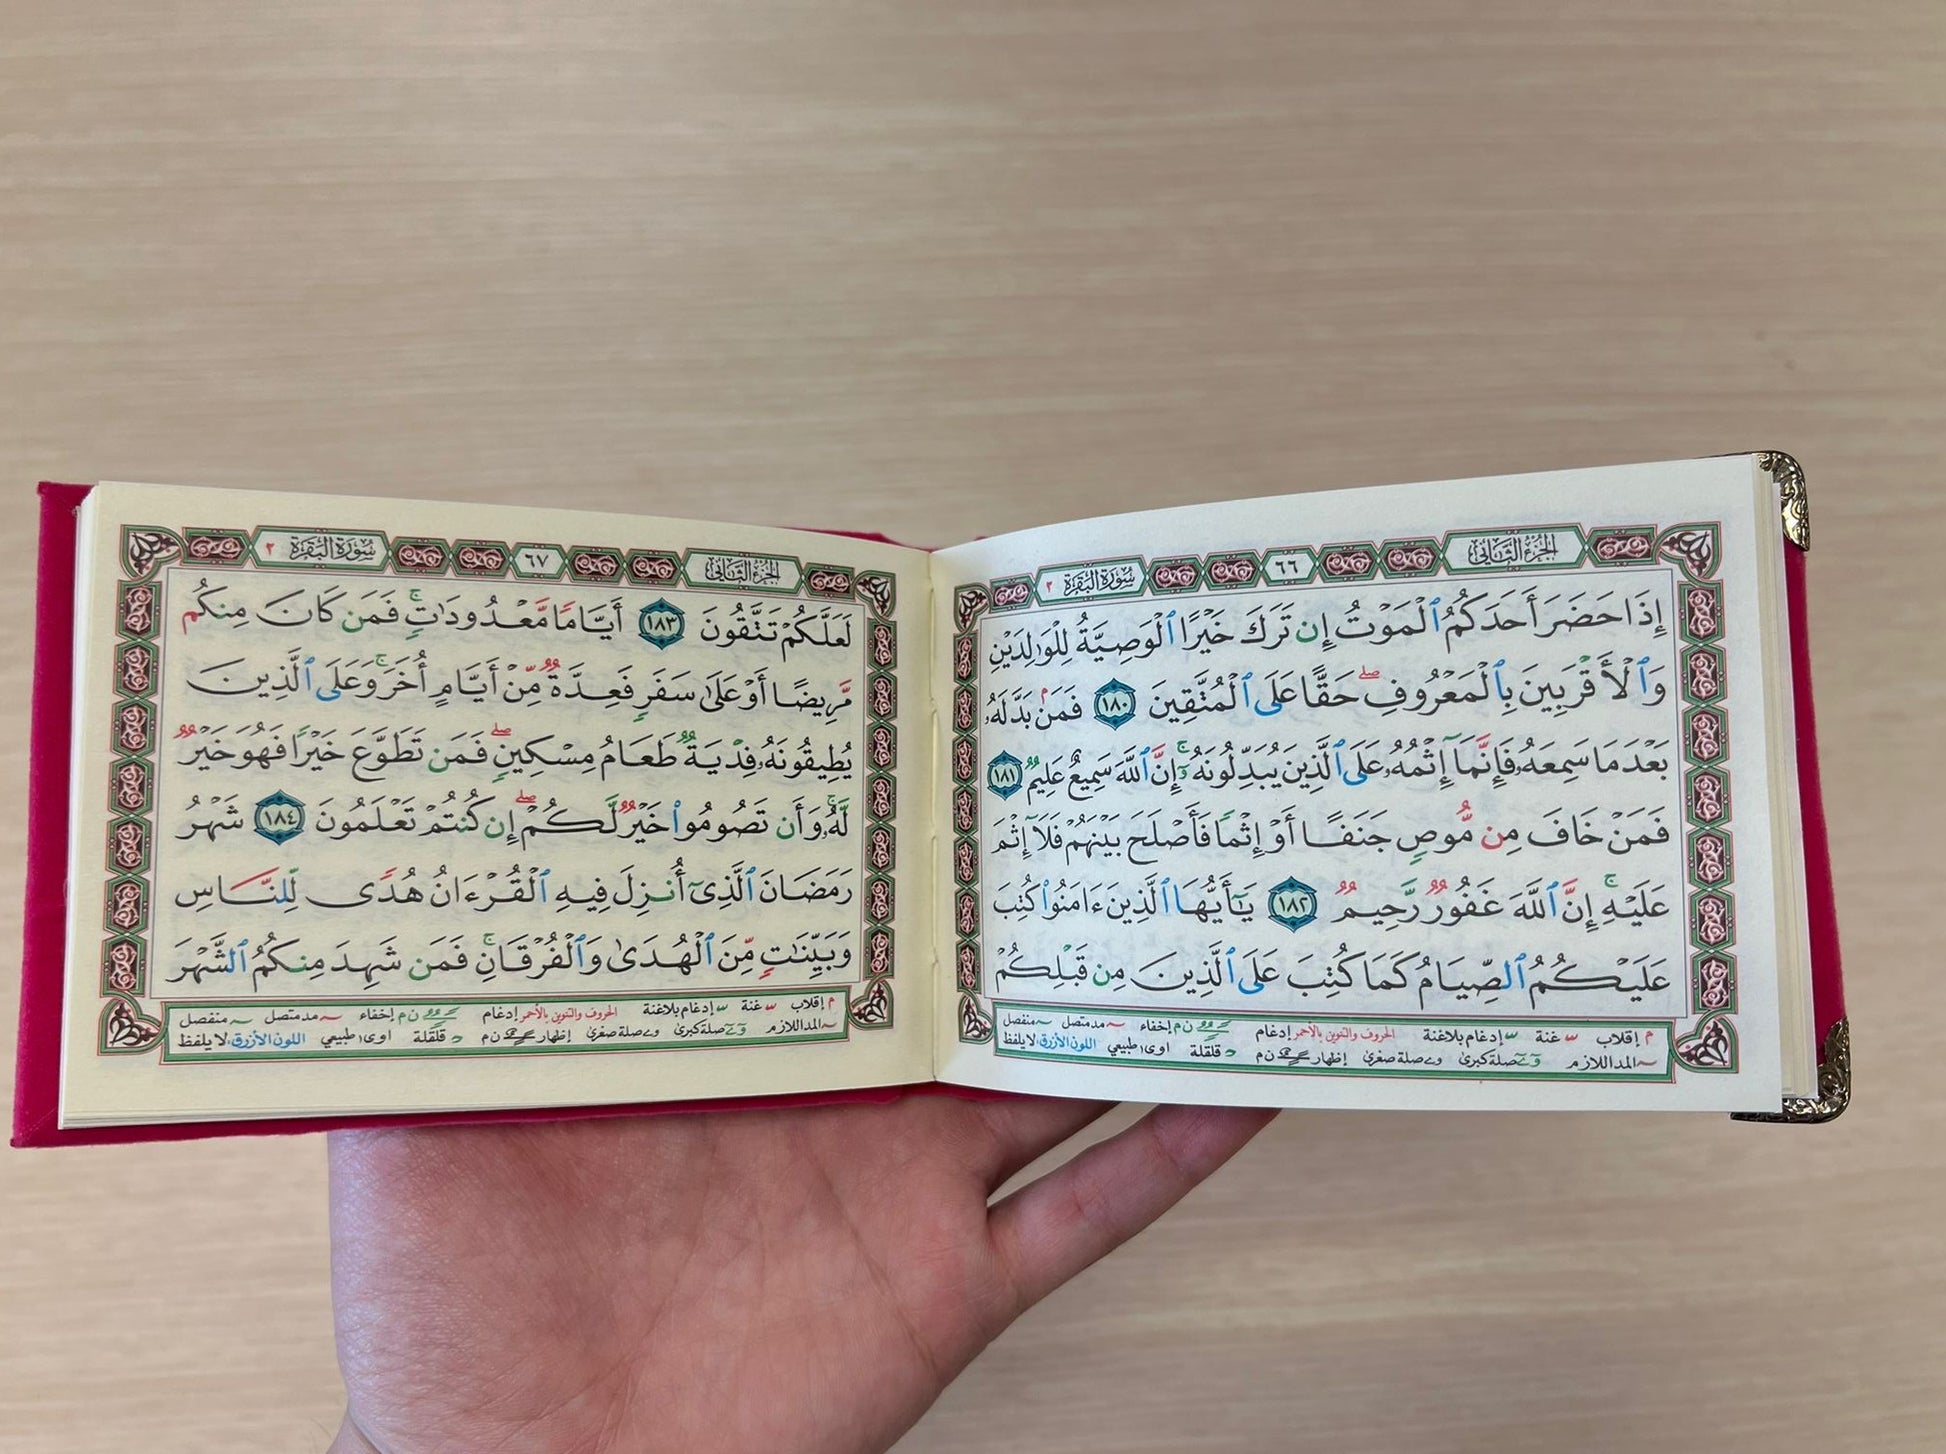 الجزء الثاني
٦٦
سورة البقرة ٢
إِذَا حَضَرَ أَحَدَكُمُ ٱلْمَوْتُ إِن تَرَكَ خَيْرًا ٱلْوَصِيَّةُ لِلْوَٰلِدَيْنِ
وَٱلْأَقْرَبِينَ بِٱلْمَعْرُوفِ ۖ حَقًّا عَلَى ٱلْمُتَّقِينَ ١٨٠ فَمَنۢ بَدَّلَهُۥ
بَعْدَ مَا سَمِعَهُۥ فَإِنَّمَآ إِثْمُهُۥ عَلَى ٱلَّذِينَ يُبَدِّلُونَهُۥٓ ۚ إِنَّ ٱللَّهَ سَمِيعٌ عَلِيمٌ ١٨١
فَمَنْ خَافَ مِن مُّوصٍ جَنَفًا أَوْ إِثْمًا فَأَصْلَحَ بَيْنَهُمْ فَلَآ إِثْمَ
عَلَيْهِ ۚ إِنَّ ٱللَّهَ غَفُورٌ رَّحِيمٌ ١٨٢ يَٰٓأَيُّهَا ٱلَّذِينَ ءَامَنُوا۟ كُتِبَ
عَلَيْكُمُ ٱلصِّيَامُ كَمَا كُتِبَ عَلَى ٱلَّذِينَ مِن قَبْلِكُمْ
م إقلاب ـ غنة ـ إدغام بلاغنة الحروف والتنوين بالأحمر إدغام ن م إخفاء ـ مد متصل ـ منفصل
ـ المد اللازم و ے صلة كبرى و ے صلة صغرى إظهار ن م د قلقلة اوى طبيعي اللون الأزرق لا يلفظ
الجزء الثاني
٦٧
سورة البقرة ٢
لَعَلَّكُمْ تَتَّقُونَ ١٨٣ أَيَّامًا مَّعْدُودَٰتٍ ۚ فَمَن كَانَ مِنكُم
مَّرِيضًا أَوْ عَلَىٰ سَفَرٍ فَعِدَّةٌ مِّنْ أَيَّامٍ أُخَرَ ۚ وَعَلَى ٱلَّذِينَ
يُطِيقُونَهُۥ فِدْيَةٌ طَعَامُ مِسْكِينٍ ۖ فَمَن تَطَوَّعَ خَيْرًا فَهُوَ خَيْرٌ
لَّهُۥ ۚ وَأَن تَصُومُوا۟ خَيْرٌ لَّكُمْ ۖ إِن كُنتُمْ تَعْلَمُونَ ١٨٤ شَهْرُ
رَمَضَانَ ٱلَّذِىٓ أُنزِلَ فِيهِ ٱلْقُرْءَانُ هُدًى لِّلنَّاسِ
وَبَيِّنَٰتٍ مِّنَ ٱلْهُدَىٰ وَٱلْفُرْقَانِ ۚ فَمَن شَهِدَ مِنكُمُ ٱلشَّهْرَ
م إقلاب ـ غنة ـ إدغام بلاغنة الحروف والتنوين بالأحمر إدغام ن م إخفاء ـ مد متصل ـ منفصل
ـ المد اللازم و ے صلة كبرى و ے صلة صغرى إظهار ن م د قلقلة اوى طبيعي اللون الأزرق لا يلفظ